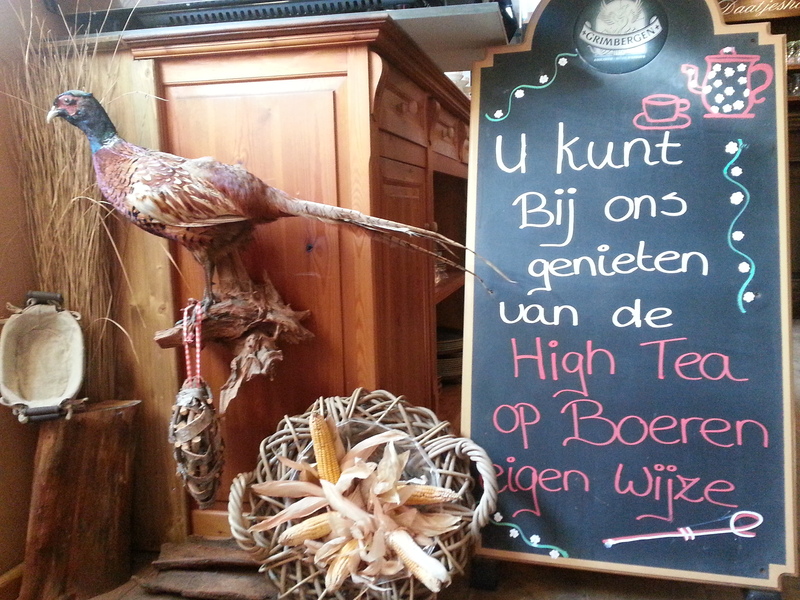 Daatjesho
GRIMBERGEN
U kunt
Bij ons
genieten
van de
High Tea
op Boeren
eigen wijze